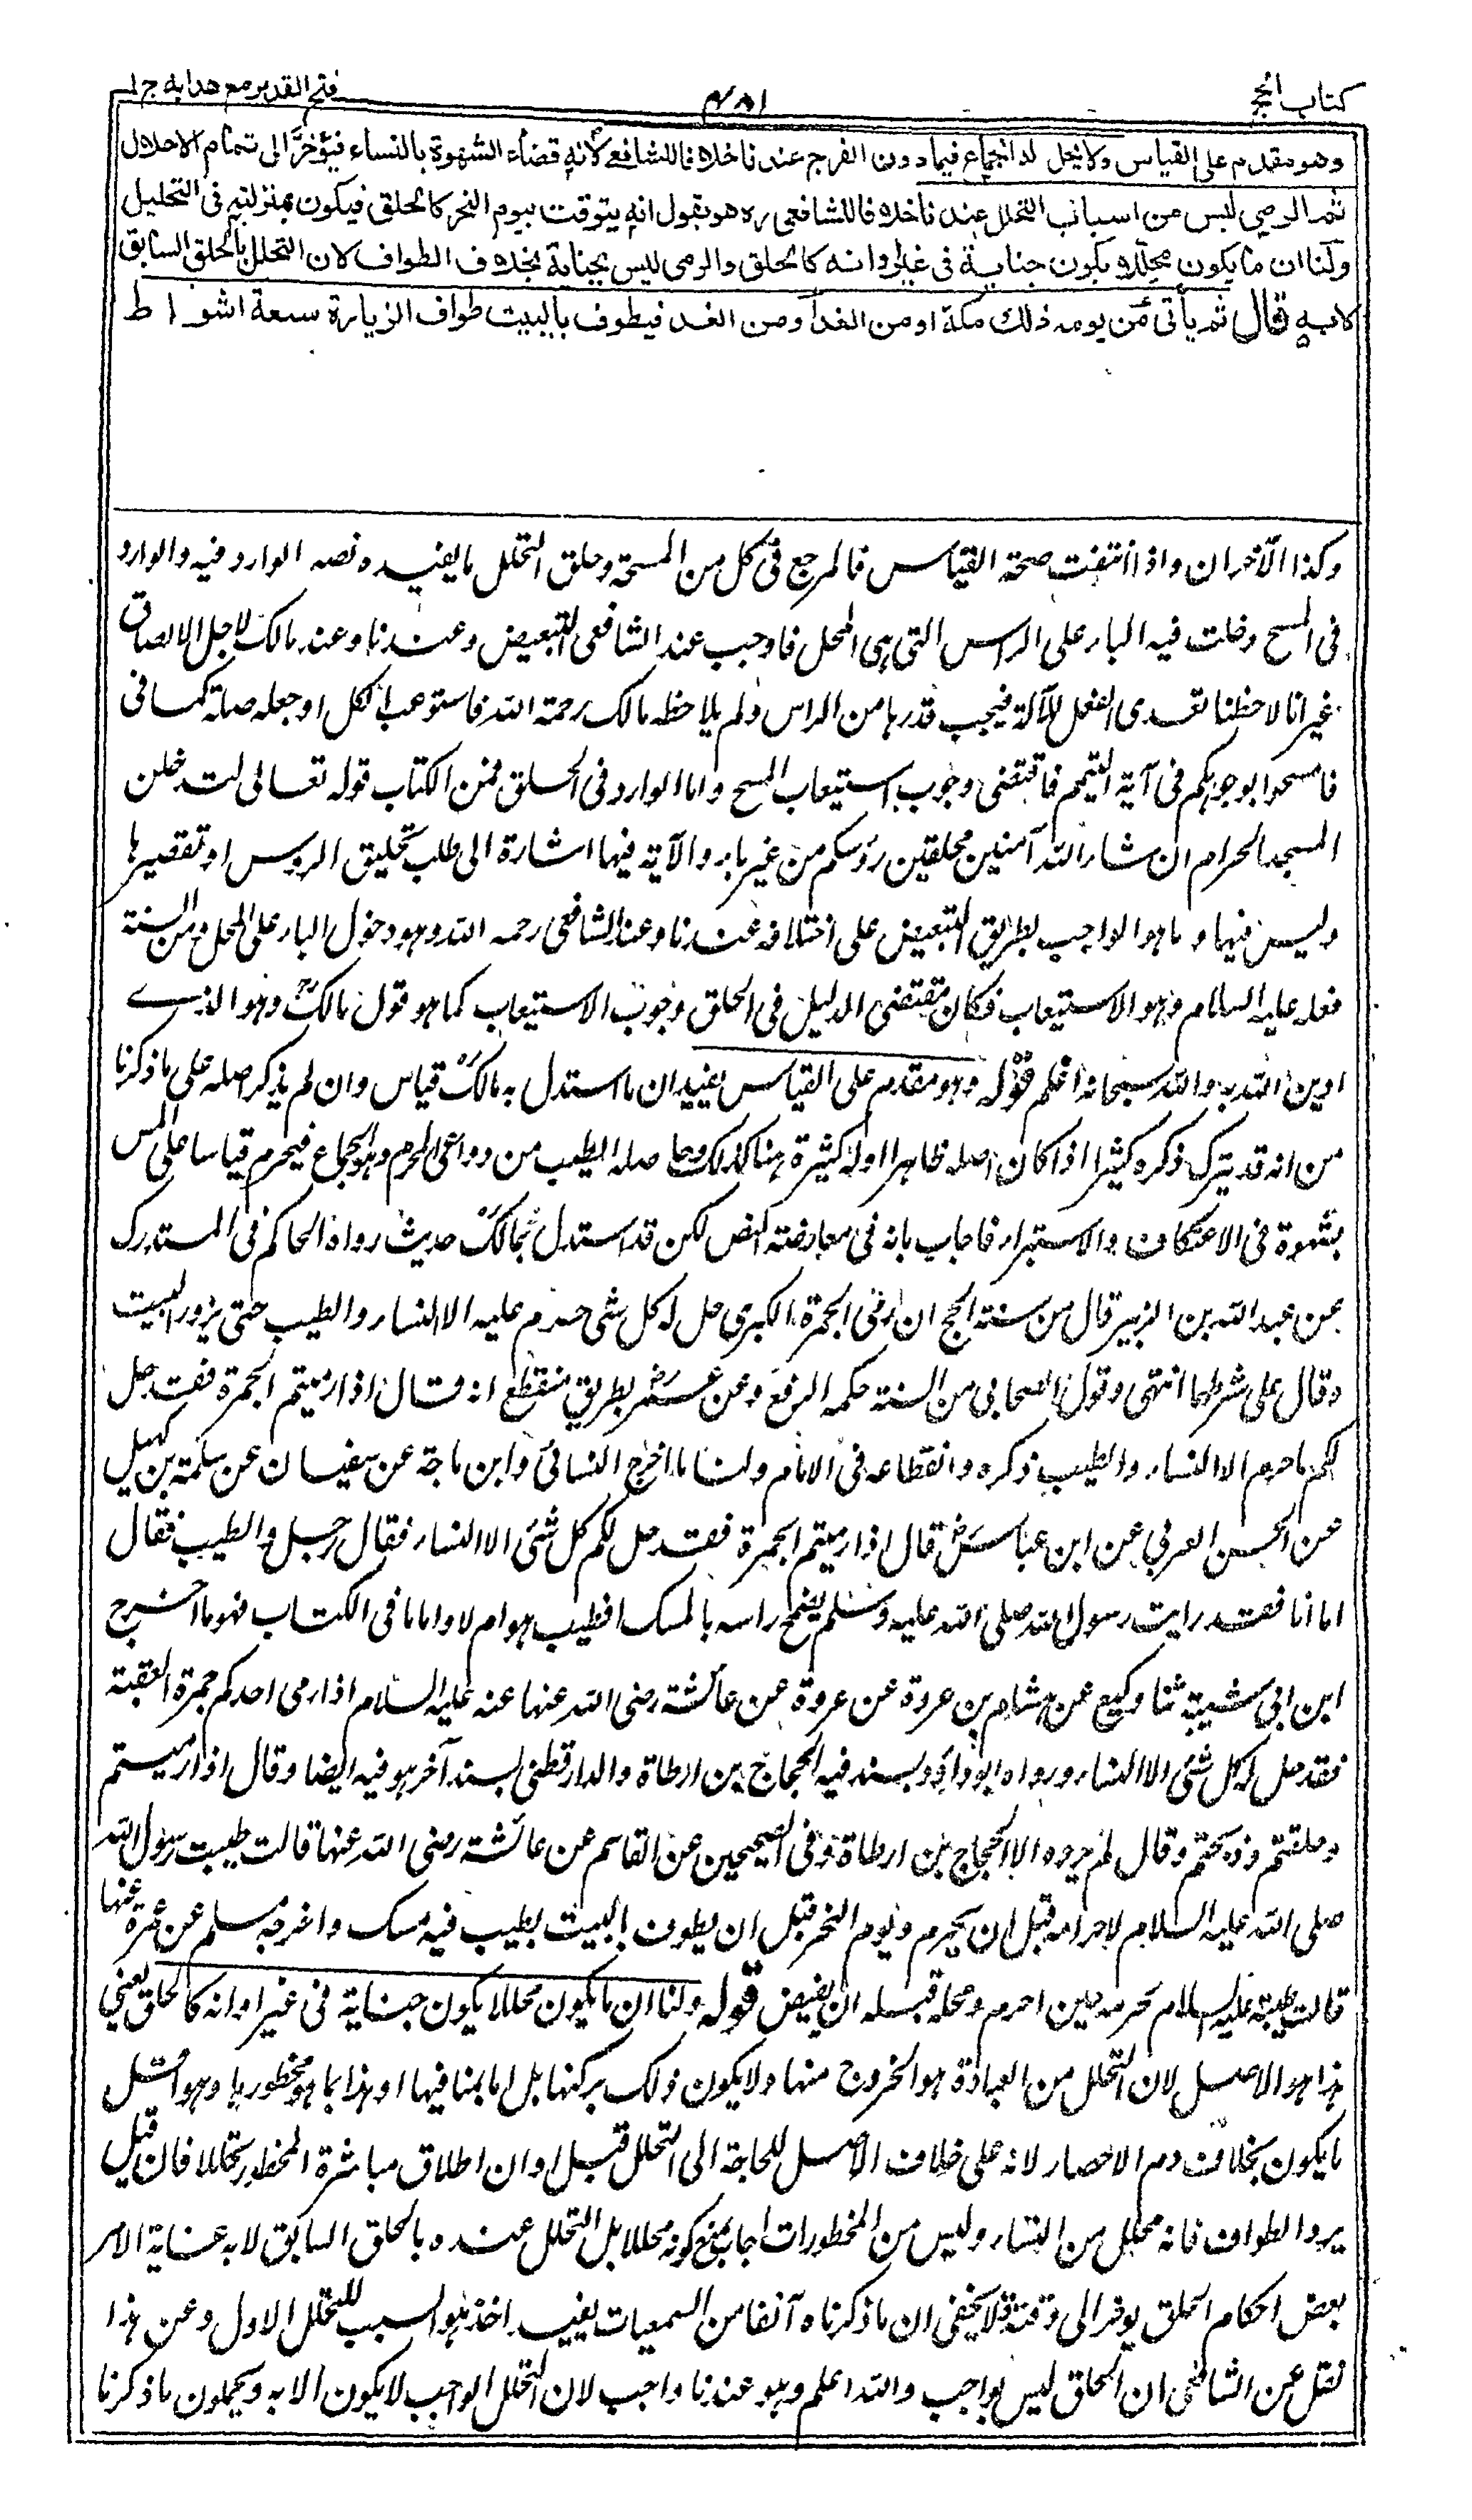 كتاب الحج
فتح القدير مع هدايه ج ١
وهو مقدم على القياس ولا يحل له الجماع فيما دون الفرج عندنا خلافا للشافعي لانه قضاء الشهوة بالنساء فيؤخر الى تمام الاحلال
ثم الرمي ليس من اسباب التحلل عندنا خلافا للشافعي ره هو يقول انه يتوقت بيوم النحر كالحلق فيكون بمنزلته في التحليل
ولنا ان ما يكون محللا يكون جناية في غير اوانه كالحلق والرمي ليس بجناية بخلاف الطواف لان التحلل بالحلق السابق
لا به قال ثم يأتي من يومه ذلك مكة او من الغد او من بعد الغد فيطوف بالبيت طواف الزيارة سبعة اشواط
وكذا الآخران واذا انتفت صحة القياس فالمرجع في كل من المسح وحلق التحلل ما يفيده نصه الوارد فيه والوارد
في المسح دخلت فيه الباء على الراس التي هي المحل فاوجب عند الشافعي التبعيض وعندنا وعند مالك لا بل الالصاق
غير انا لاحظنا تعدى الفعل للآلة فيجب قدرها من الراس ولم يلاحظه مالك رحمة الله فاستوعب الكل او جعله صلة كما في
فامسحوا بوجوهكم في آية التيمم فاقتضى وجوب استيعاب المسح واما الوارد في الحلق فمن الكتاب قوله تعالى لتدخلن
المسجد الحرام ان شاء الله آمنين محلقين رؤسكم من غير باء والآية فيها اشارة الى طلب تحليق الرؤس او تقصيرها
وليس فيها وما هو الواجب بطريق التبعيض على اختلافه عندنا وعند الشافعي رحمه الله وهو دخول الباء على المحل ومن السنة
فعله عليه السلام وهو الاستيعاب فكان مقتضى الدليل في الحلق وجوب الاستيعاب كما هو قول مالك وهو الذي
ادين الله به والله سبحانه اعلم قوله وهو مقدم على القياس يفيد ان ما استدل به مالك قياس وان لم يذكر اصله على ما ذكرنا
من انه قد يترك ذكره كثيرا اذا كان اصله ظاهرا او له كثيرة هنا كذلك وحاصله الطيب من دواعي المحرم وهو الجماع فيحرم قياسا على المس
بشهوة في الاعتكاف والاستبراء فاجاب بانه في معارضة النص لكن قد استدل لمالك حديث رواه الحاكم في المستدرك
عن عبد الله بن الزبير قال من سنة الحج ان رمى الجمرة الكبرى حل له كل شئ حرم عليه الا النساء والطيب حتى يزور البيت
وقال على شرطهما انتهى وقول الصحابي من السنة حكمه الرفع وعن عمر بطريق منقطع انه قال اذا رميتم الجمرة فقد حل
لكم ما حرم الا النساء والطيب ذكره وانقطاعه في الامام ولنا ما اخرج النسائي وابن ماجة عن سفيان عن سلمة بن كهيل
عن الحسن العرني عن ابن عباس قال اذا رميتم الجمرة فقد حل لكم كل شئ الا النساء فقال رجل والطيب فقال
اما انا فقد رايت رسول الله صلى الله عليه وسلم يضمخ راسه بالمسك افطيب هو ام لا واما ما في الكتاب فهو ما اخرج
ابن ابي شيبة ثنا وكيع عن هشام بن عروة عن عروة عن عائشة رضى الله عنها عنه عليه السلام اذا رمى احدكم جمرة العقبة
فقد حل له كل شئ الا النساء ورواه ابو داؤد بسند فيه الحجاج بن ارطاة والدارقطني بسند آخر هو فيه ايضا وقال اذا رميتم
وحلقتم وذبحتم وقال لم يروه الا الحجاج بن ارطاة وفى الصحيحين عن القاسم عن عائشة رضى الله عنها قالت طيبت رسول الله
صلى الله عليه السلام لاحرامه قبل ان يحرم ويوم النحر قبل ان يطوف بالبيت بطيب فيه مسك واخرجه مسلم عن عمرة عنها
قالت طيبته عليه السلام لحرمه حين احرم ولحله قبل ان يفيض قوله ولنا ان ما يكون محللا يكون جناية فى غير اوانه كالحلق يعني
هذا هو الاصل لان التحلل من العبادة هو الخروج منها ولا يكون ذلك بركنها بل اما بمنافيها او هذا بما هو محظورها وهو اقل
ما يكون بخلاف دم الاحصار لانه على خلاف الاصل للحاجة الى التحلل قبل اوان اطلاق مباشرة المحظور تحللا فان قيل
يرد الطواف فانه محلل من النساء وليس من المحظورات اجاب بمنع كونه محللا بل التحلل عنده بالحلق السابق لا به غاية الامر
بعض احكام الحلق يؤخر الى وقته فلا يخفى ان ما ذكرناه آنفا من السمعيات يفيد انه هو السبب للتحلل الاول وعن هذا
نقل عن الشافعى ان الحلق ليس بواجب والله اعلم وهو عندنا واجب لان التحلل الواجب لا يكون الا به ويحملون ما ذكرنا